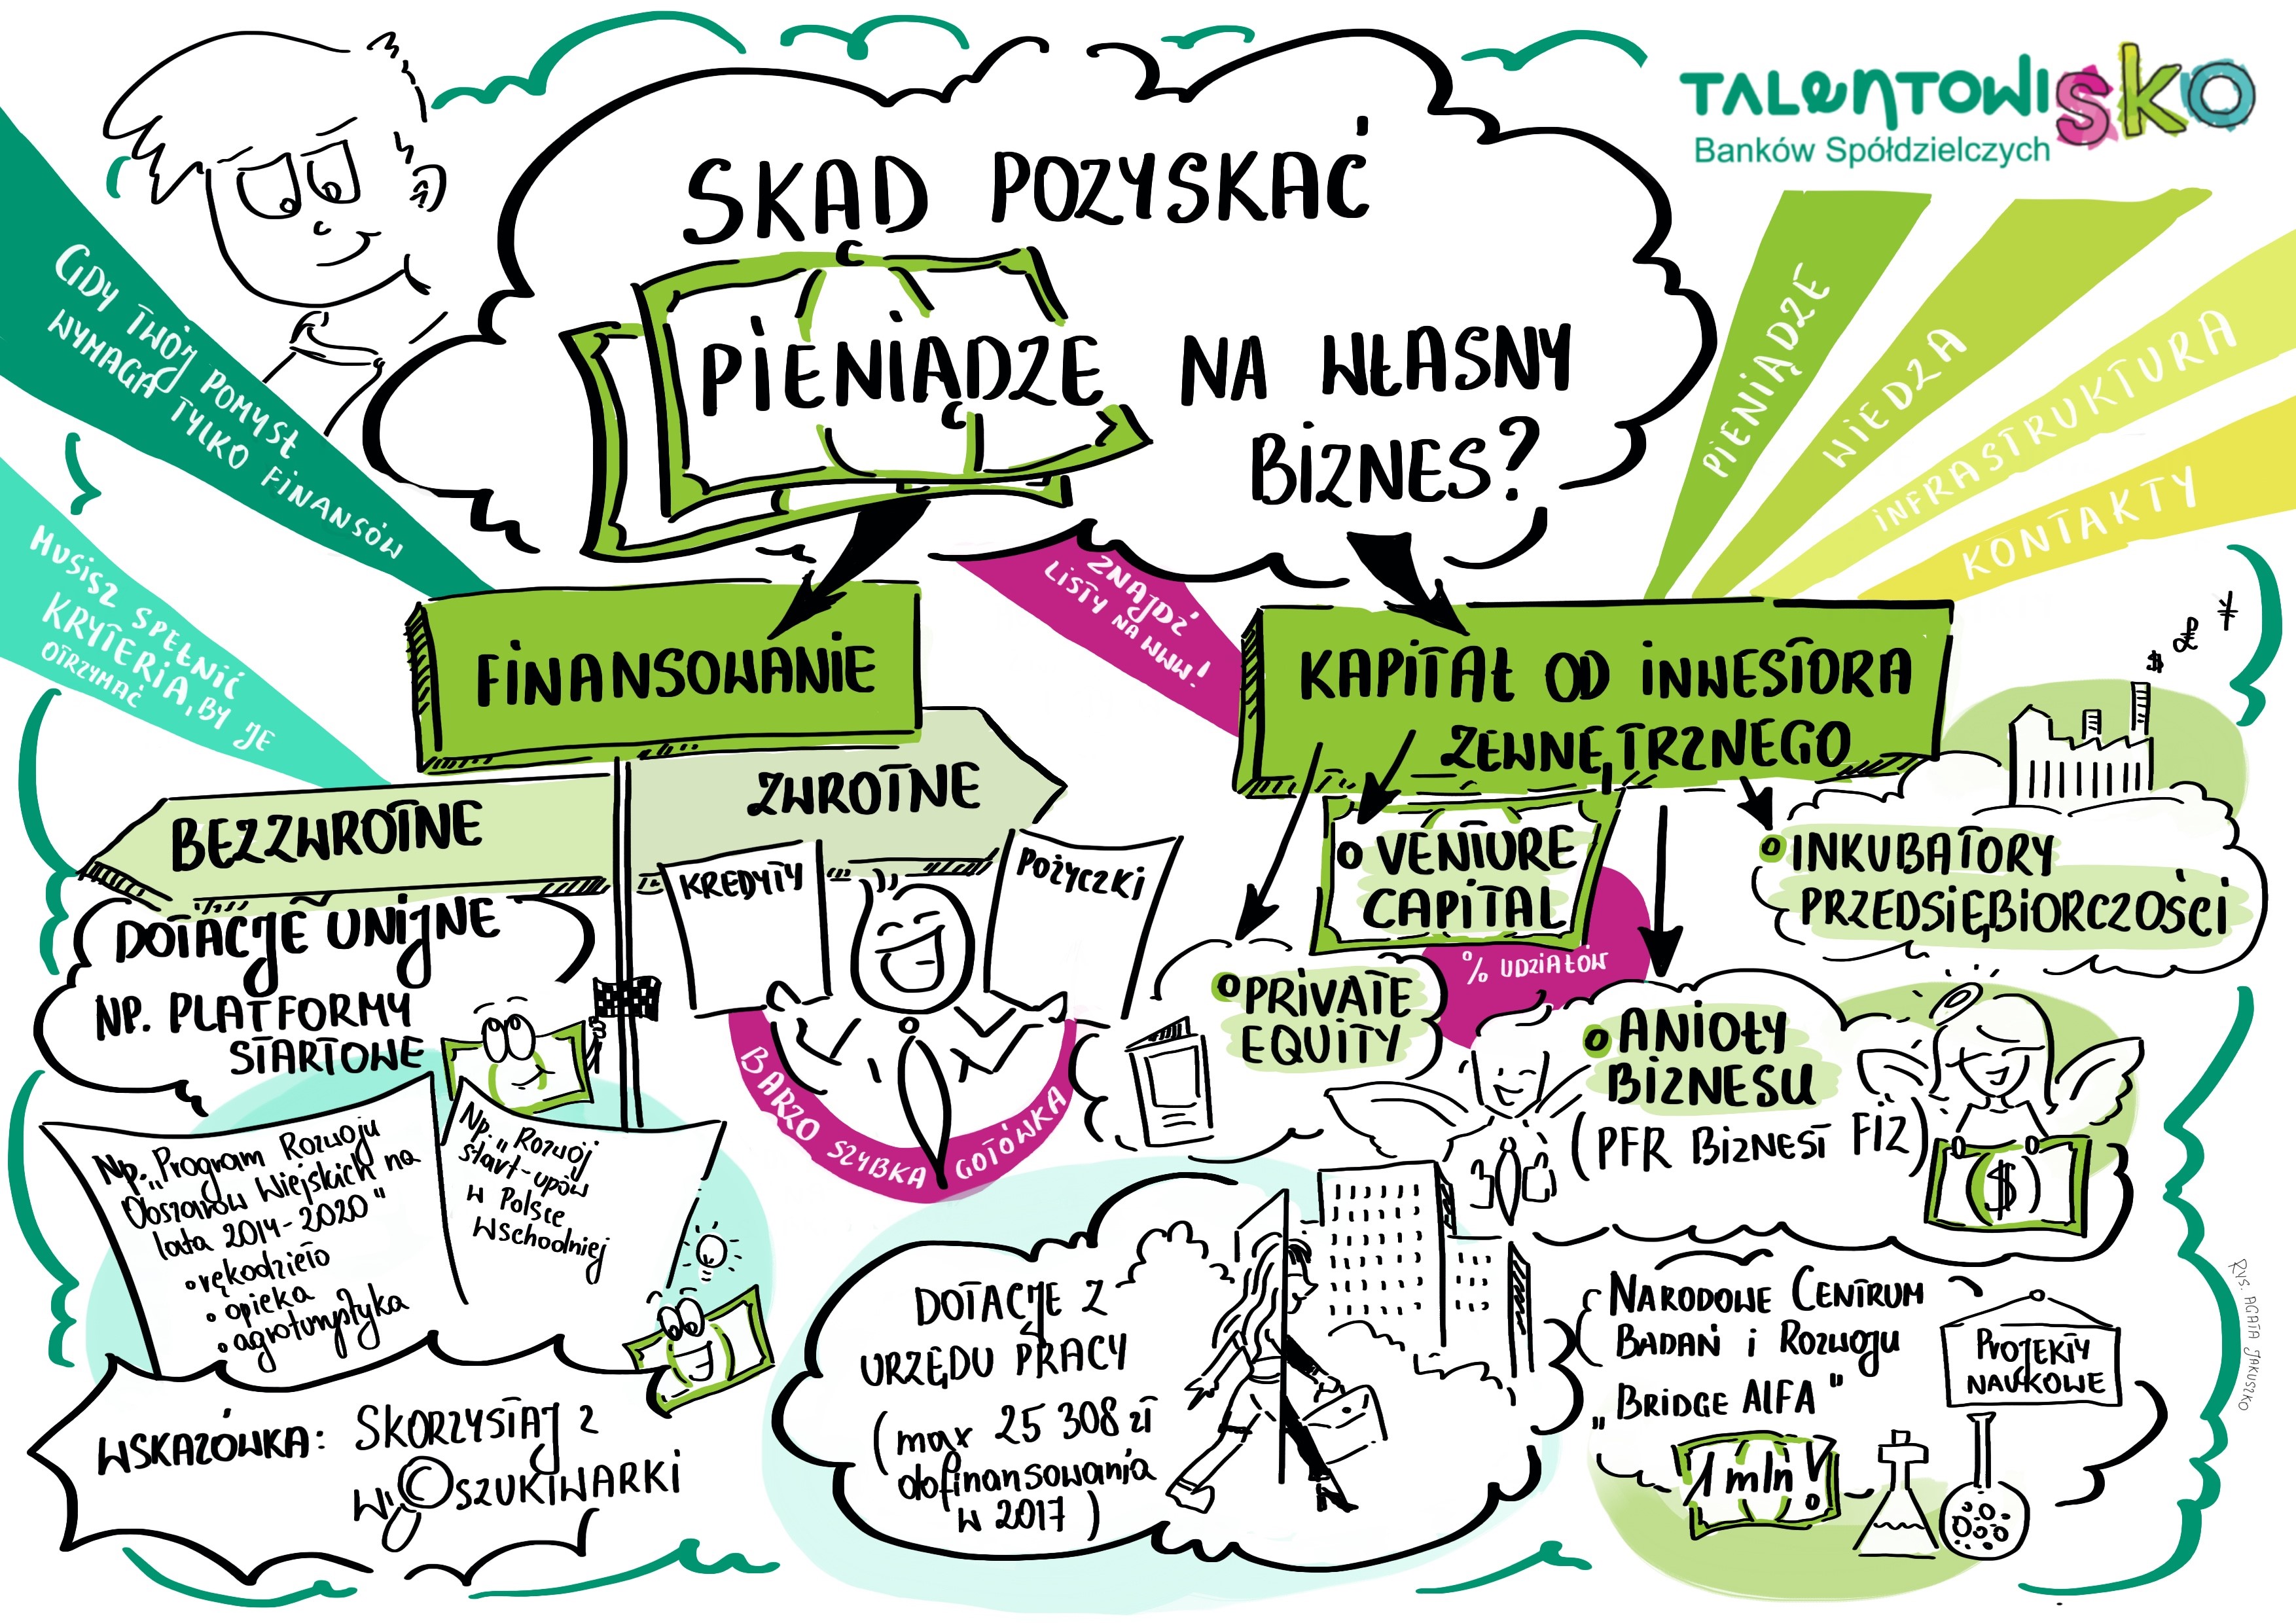 TALENTOWISKO
Banków Spółdzielczych
SKĄD POZYSKAĆ
PIENIĄDZE NA WŁASNY
BIZNES?
GDY TWÓJ POMYSŁ
WYMAGA TYLKO FINANSÓW
MUSISZ SPEŁNIĆ
KRYTERIA, BY JE
OTRZYMAĆ
ZNAJDŹ
LISTY NA WWW!
PIENIĄDZE
WIEDZA
INFRASTRUKTURA
KONTAKTY
FINANSOWANIE
BEZZWROTNE
ZWROTNE
DOTACJE UNIJNE
NP. PLATFORMY
STARTOWE
Np. „Program Rozwoju
Obszarów Wiejskich na
lata 2014-2020"
• rękodzieło
• opieka
• agroturystyka
Np. „Rozwój
start-upów
w Polsce
Wschodniej
WSKAZÓWKA: SKORZYSTAJ Z
WYOSZUKIWARKI
KREDYTY
POŻYCZKI
BARZO SZYBKA GOTÓWKA
DOTACJE Z
URZĘDU PRACY
(max 25 308 zł
dofinansowania
w 2017)
KAPITAŁ OD INWESTORA
ZEWNĘTRZNEGO
VENTURE
CAPITAL
% UDZIAŁÓW
PRIVATE
EQUITY
INKUBATORY
PRZEDSIĘBIORCZOŚCI
$ zł ¥
ANIOŁY
BIZNESU
(PFR BIZNEST FIZ)
$
NARODOWE CENTRUM
BADAŃ i ROZWOJU
„BRIDGE ALFA"
1 mln!
PROJEKTY
NAUKOWE
RYS. AGATA JAKUSZKO